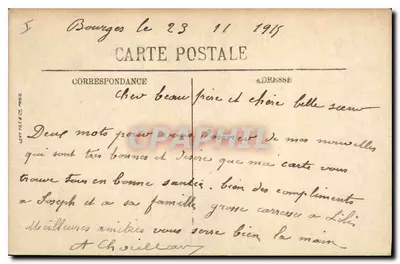 I
Bourges le 23 11 1915
CARTE POSTALE
CORRESPONDANCE
ADRESSE
Cher beau frère et chère belle sœur
Deux mots pour vous donner de mes nouvelles
qui sont très bonnes et désire que ma carte vous
trouve tous en bonne santé. bien des compliments
a Joseph et a sa famille grosse caresses a Lili
Meilleures amitiés vous serre bien la main
DELPHAGE